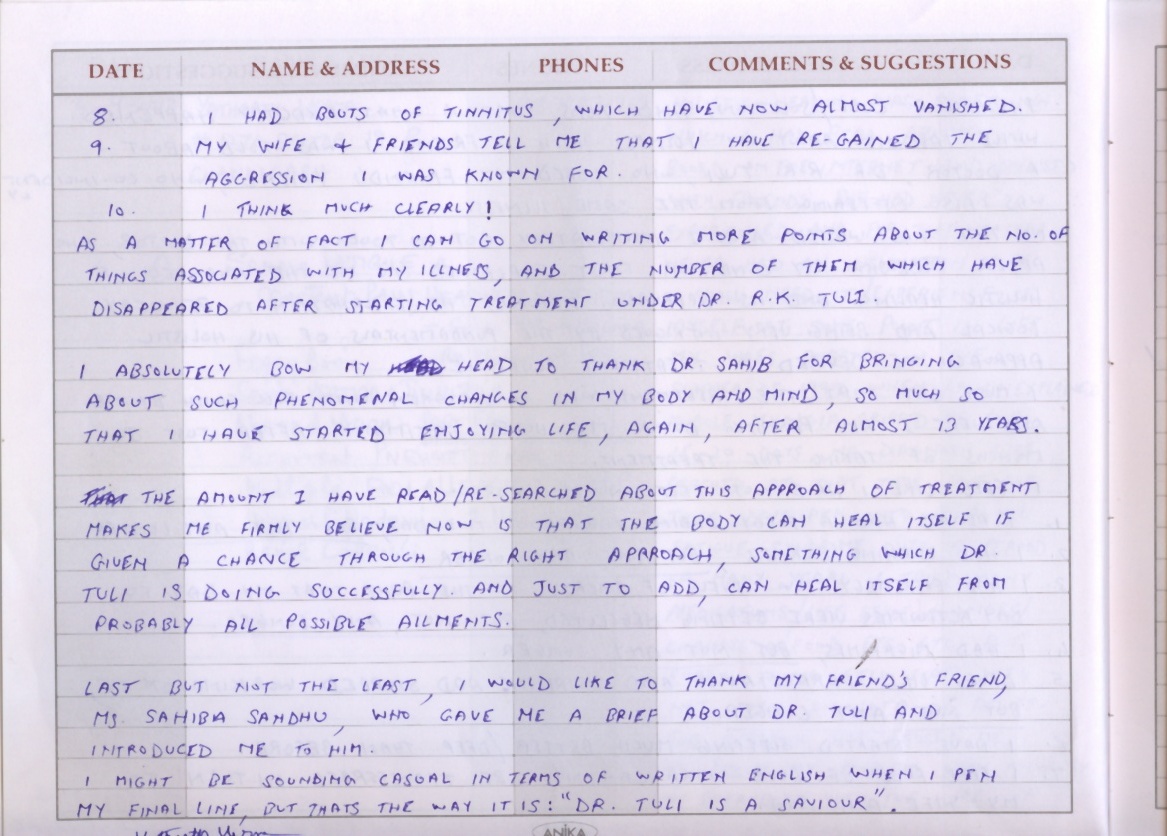 DATE NAME & ADDRESS PHONES COMMENTS & SUGGESTIONS
8. I HAD BOUTS OF TINNITUS, WHICH HAVE NOW ALMOST VANISHED.
9. MY WIFE & FRIENDS TELL ME THAT I HAVE RE-GAINED THE
AGGRESSION WAS KNOWN FOR.
10. I THINK MUCH CLEARLY!
AS A MATTER OF FACT I CAN GO ON WRITING MORE POINTS ABOUT THE NO. OF
THINGS ASSOCIATED WITH MY ILLNESS, AND THE NUMBER OF THEM WHICH HAVE
DISAPPEARED AFTER STARTING TREATMENT UNDER DR. R.K. TULI.
I ABSOLUTELY BOW MY HEAD TO THANK DR SAHIB FOR BRINGING
ABOUT SUCH PHENOMENAL CHANGES IN MY BODY AND MIND, SO MUCH SO
THAT I HAVE STARTED ENJOYING LIFE, AGAIN, AFTER ALMOST 13 YEARS.
THE AMOUNT I HAVE READ/RE-SEARCHED ABOUT THIS APPROACH OF TREATMENT
MAKES ME FIRMLY BELIEVE NOW IS THAT THE BODY CAN HEAL ITSELF IF
GIVEN A CHANCE THROUGH THE RIGHT APPROACH, SOMETHING WHICH DR.
TULI IS DOING SUCCESSFULLY. AND JUST TO ADD, CAN HEAL ITSELF FROM
PROBABLY ALL POSSIBLE AILMENTS.
LAST BUT NOT THE LEAST, I WOULD LIKE TO THANK MY FRIEND'S FRIEND,
MS. SAHIBA SANDHU, WHO GAVE ME A BRIEF ABOUT DR. TULI AND
INTRODUCED ME TO HIM.
I MIGHT BE SOUNDING CASUAL IN TERMS OF WRITTEN ENGLISH WHEN I PEN
MY FINAL LINE, BUT THATS THE WAY IT IS: "DR. TULI IS A SAVIOUR"
ANIKA